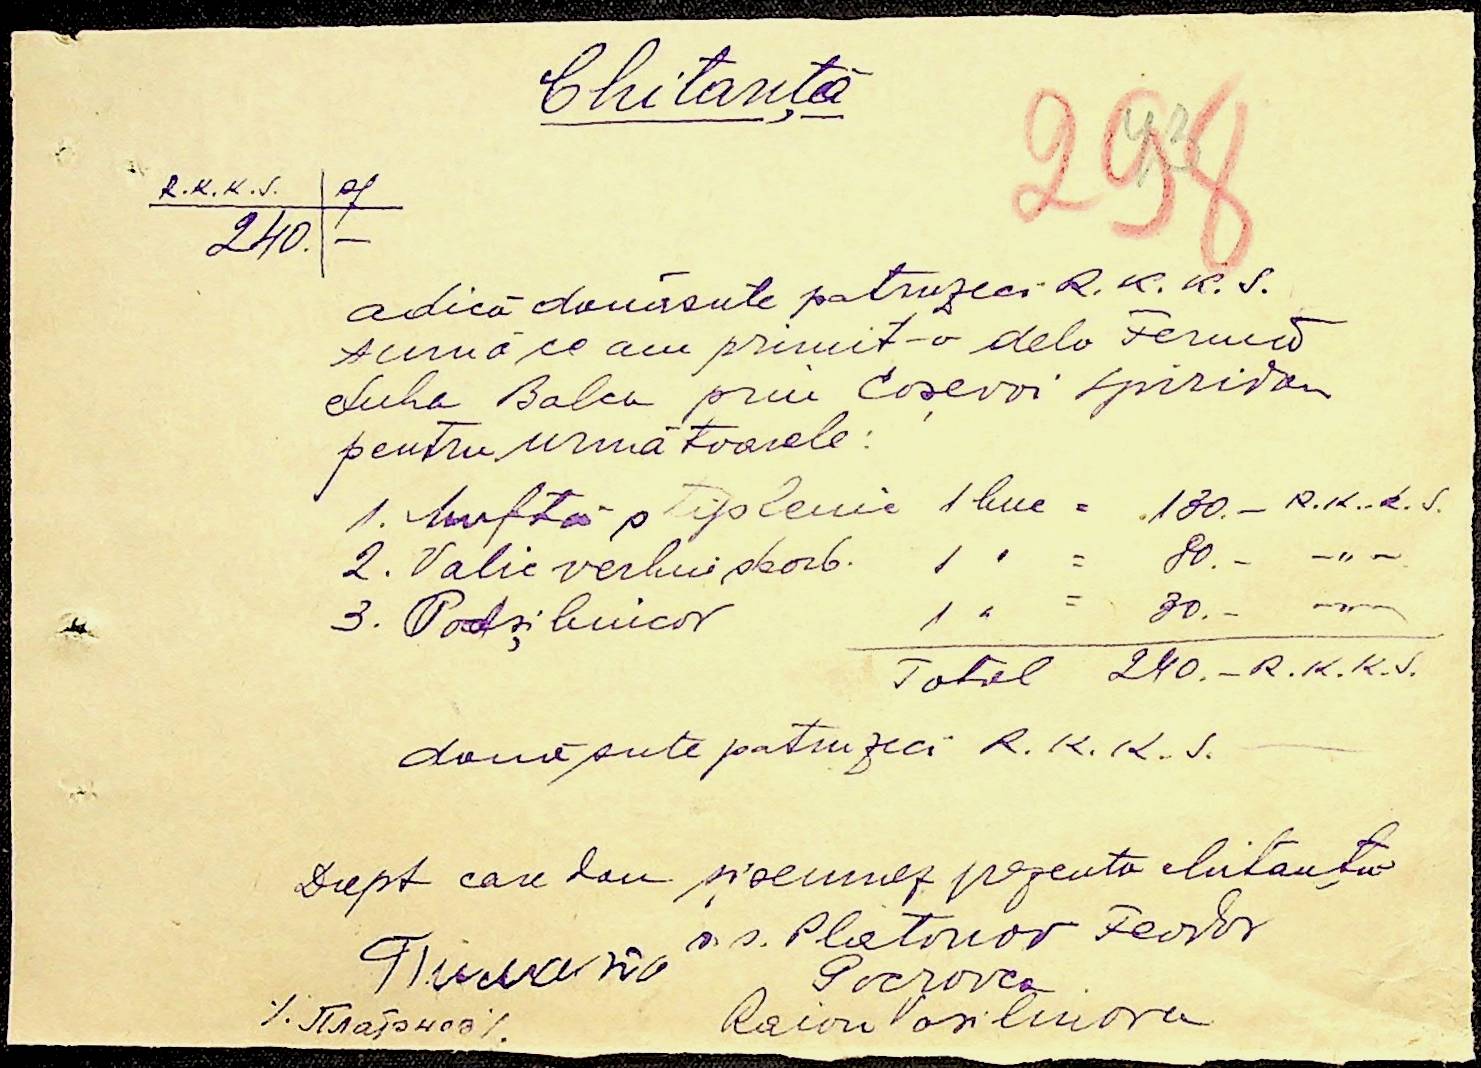 Chitanță
298
R.K.K.S.
240. —
adică douăsute patruzeci R.K.K.S.
sumă ce am primit-o dela Ferma
Suha Balca prin Coșevoi Spiridon
pentru următoarele:
1. Muftă 1 buc = 130.- R.K.K.S.
2. Valic verhni scorb. 1 " = 80.- -"-
3. Podșibnicov 1 " = 30.- -"-
Total 240.- R.K.K.S.
două sute patruzeci R.K.K.S.
Drept care dau și semnez prezenta chitanță
s.s. Platonov Feodor
Pocrovca
Raion Vasilinova
/. Платонов /.